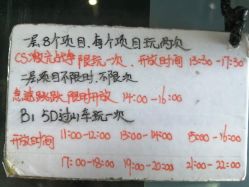 一层8个项目,每个项目玩两次
CS:激光战争限玩一次、开放时间 13:30-17:30
二层项目不限时、不限次
急速跷跷 限时开放 14:00-16:00
B1:5D过山车玩一次
开放时间 11:00-12:00 13:00-14:00 15:00-16:00
17:00-18:00 19:00-20:00 21:00-22:00